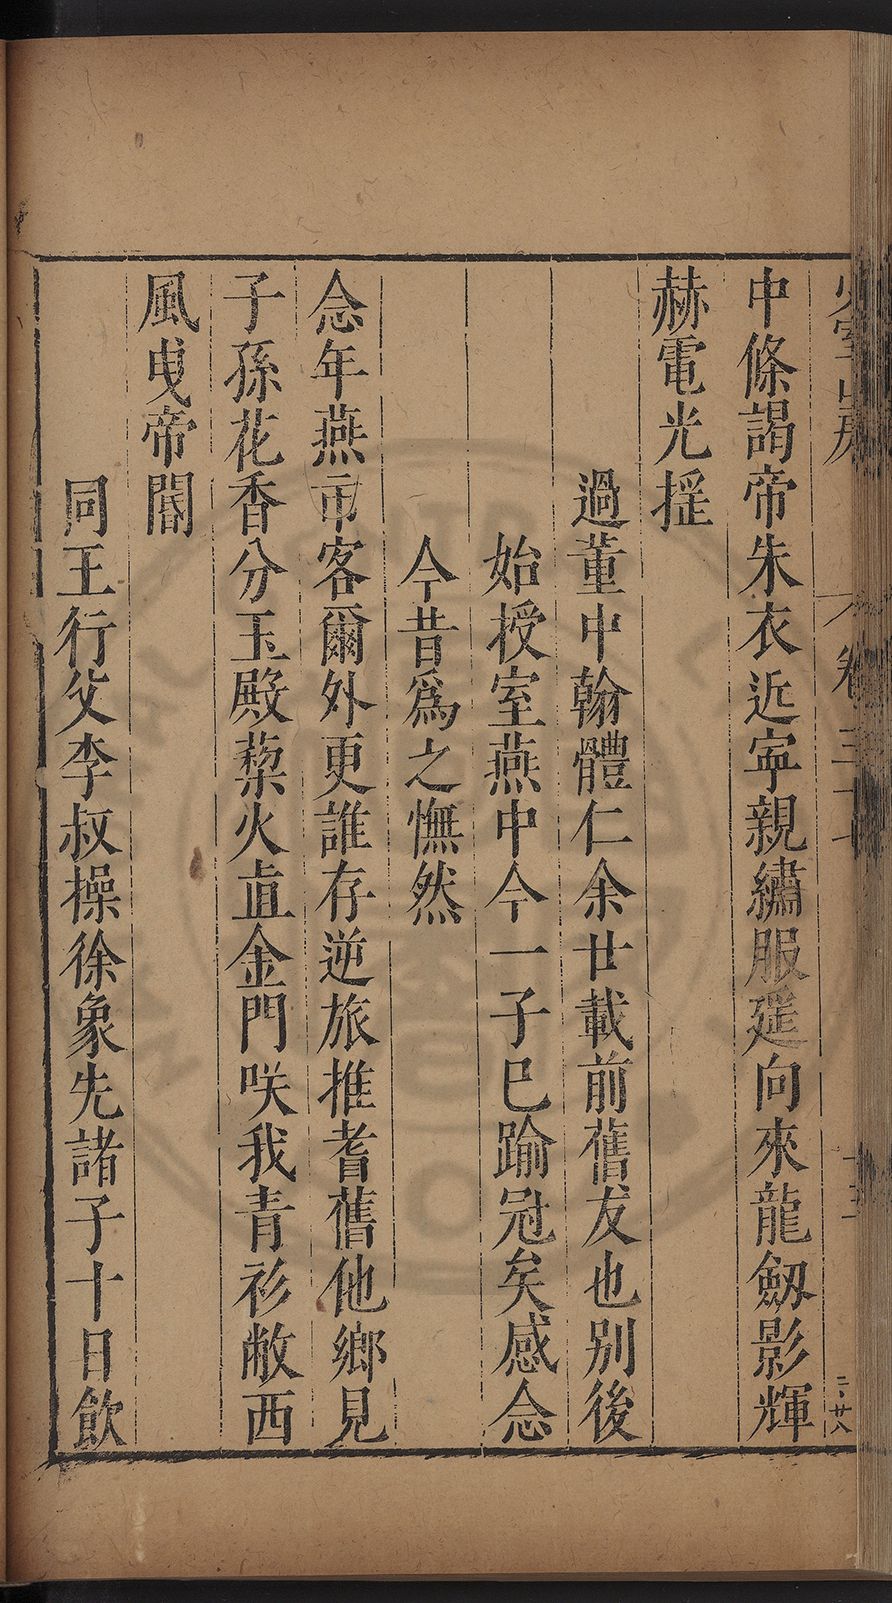 中條謁帝朱衣近寧親繡服延向來龍劒影輝
赫電光揺
過董中翰體仁余廿載前舊友也别後
始授室燕中今一子已踰冠矣感念
今昔爲之憮然
念年燕市客爾外更誰存逆旅推耆舊他鄉見
子孫花香分玉殿藜火直金門咲我青衫敝西
風曵帝閽
同王行父李叔操徐象先諸子十日飲